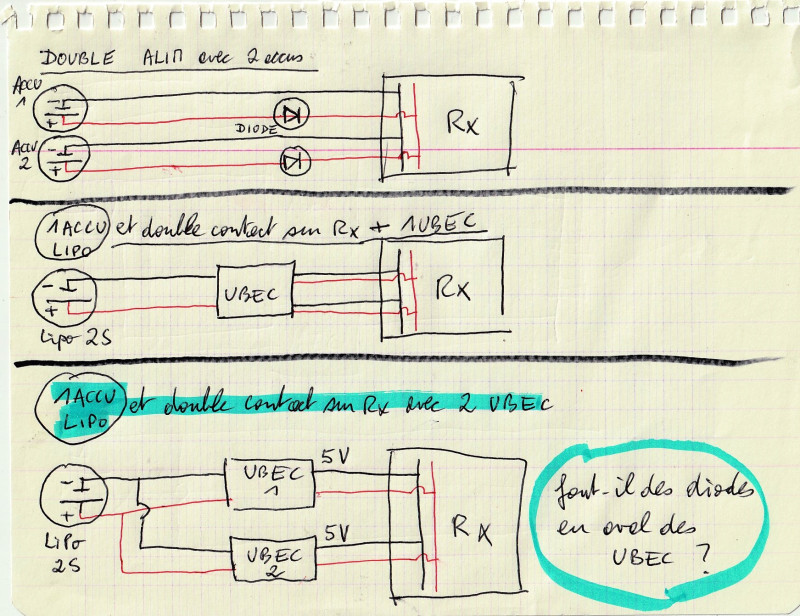 DOUBLE ALIM avec 2 accus
ACCU
1
DIODE
Rx
ACCU
2
1ACCU
LIPO
et double contact sur Rx + 1UBEC
UBEC
Rx
Lipo 2S
1ACCU
LIPO
et double contact sur Rx avec 2 UBEC
UBEC
1
5V
UBEC
2
5V
Rx
LiPo
2S
faut-il des diodes
en aval des
UBEC ?